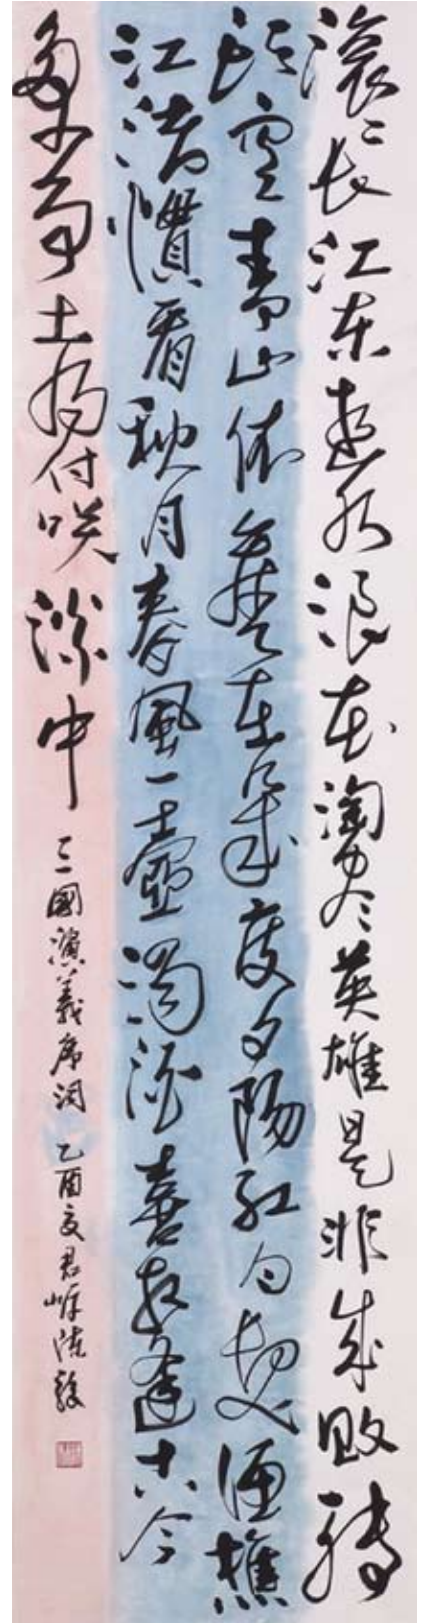 滾〻長江東逝水浪花淘盡英雄是非成敗轉
頭空青山依舊在幾度夕陽紅白髮漁樵
江渚慣看秋月春風一壺濁酒喜相逢古今
多少事都付咲談中
三國演義序詞 乙酉夏